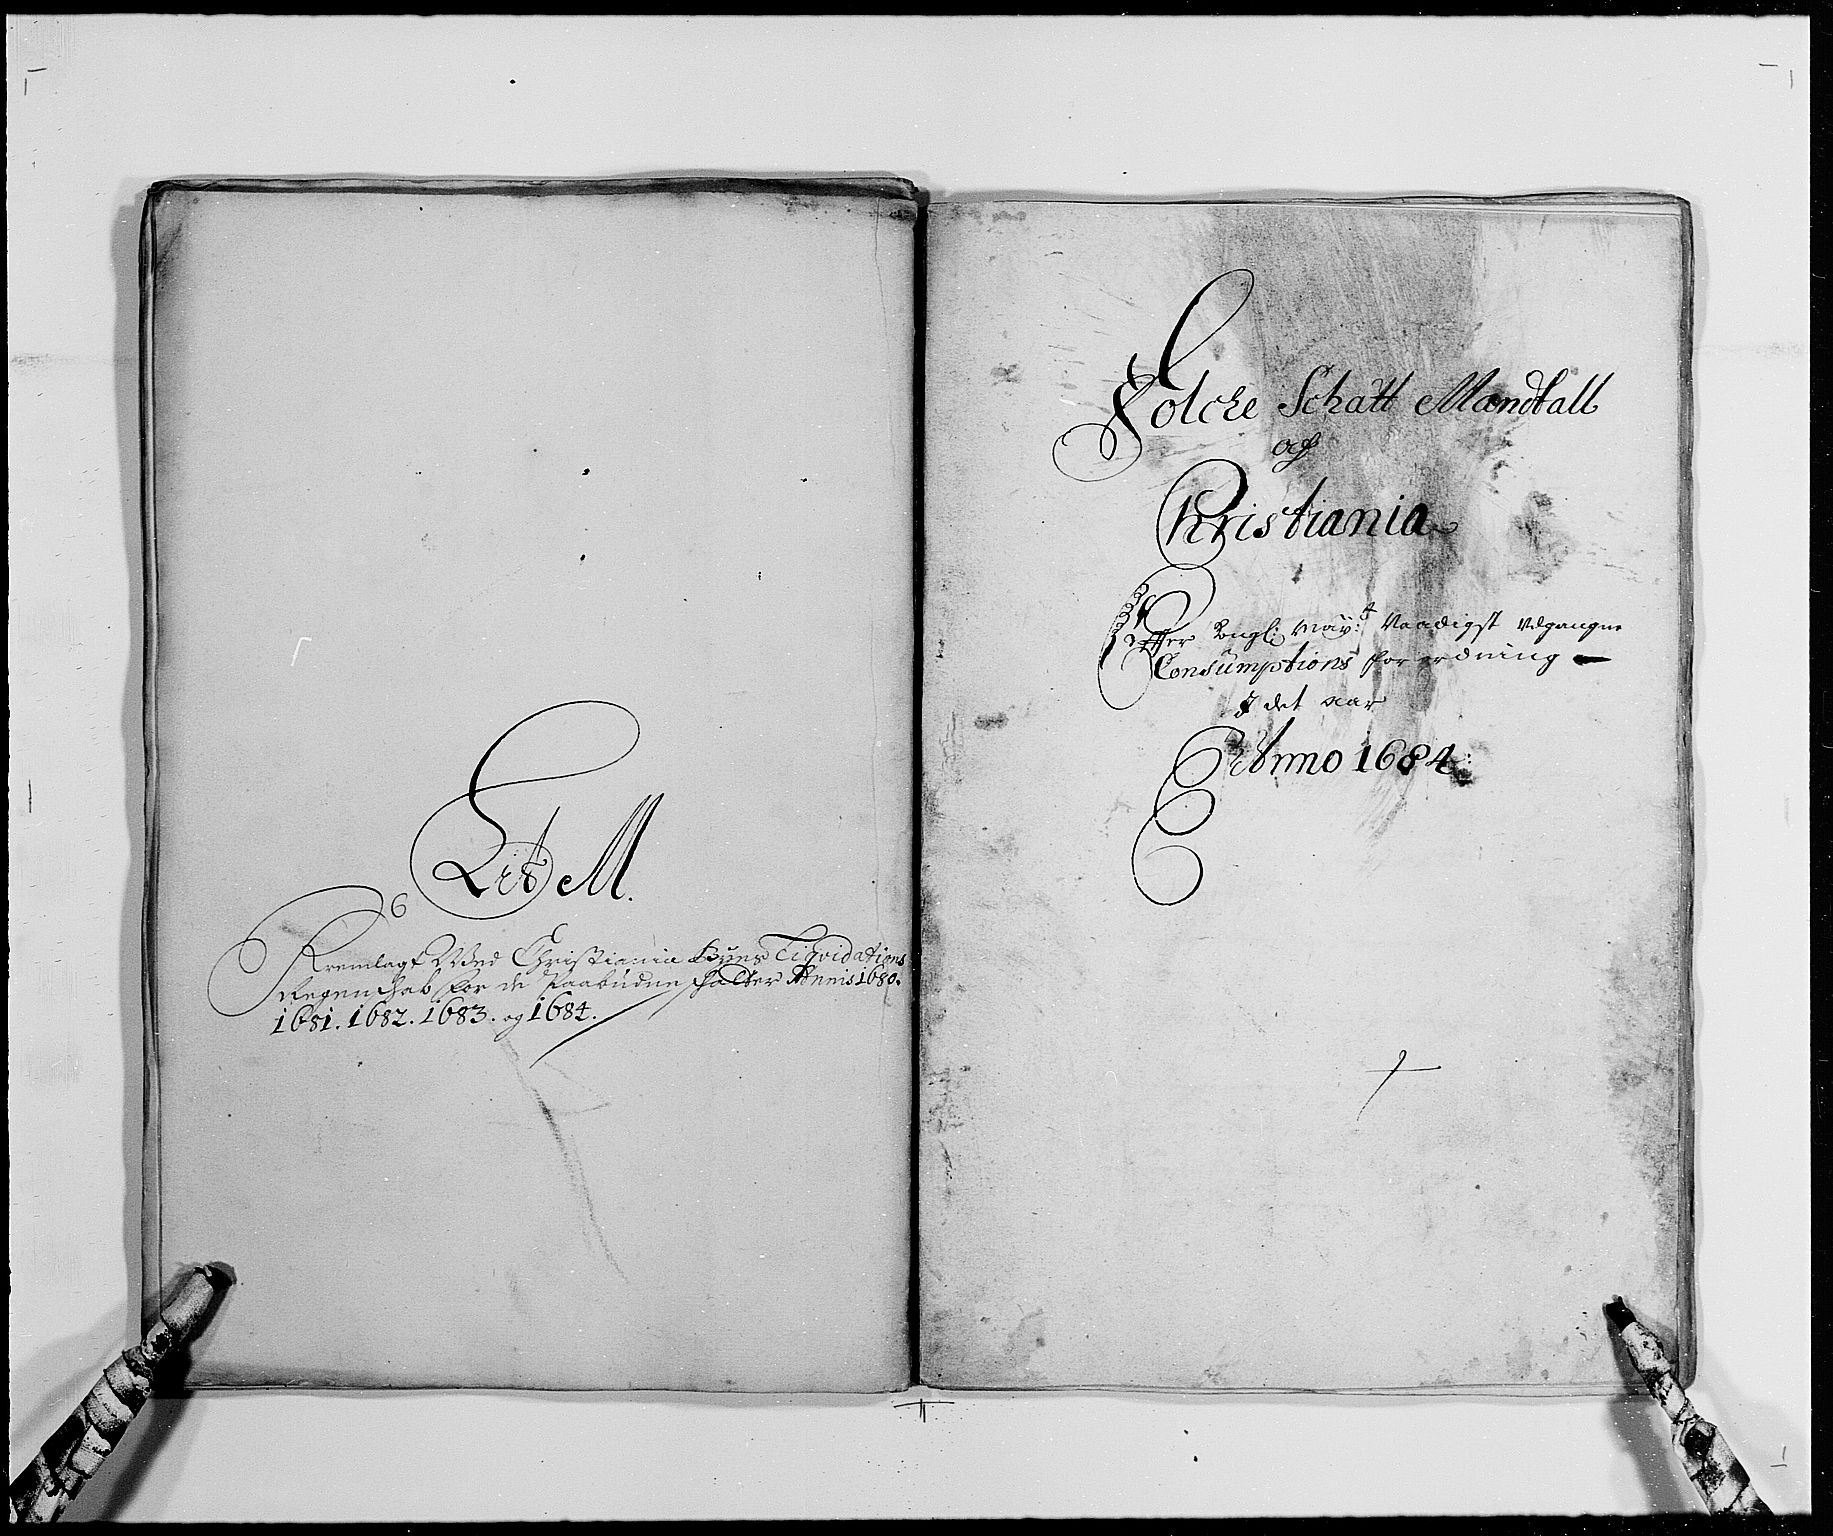 Lit M.
Fremlagt Wed Christiania Byes Liqvidations
Regenschab for de Paabudne schatter Annis 1680.
1681. 1682. 1683. og 1684.
Folcke Schatt Mandtall
af
Christiania
Effter Kongl: May:tz Naadigst udgangne
Consumptions forordning
I det aar
Anno 1684